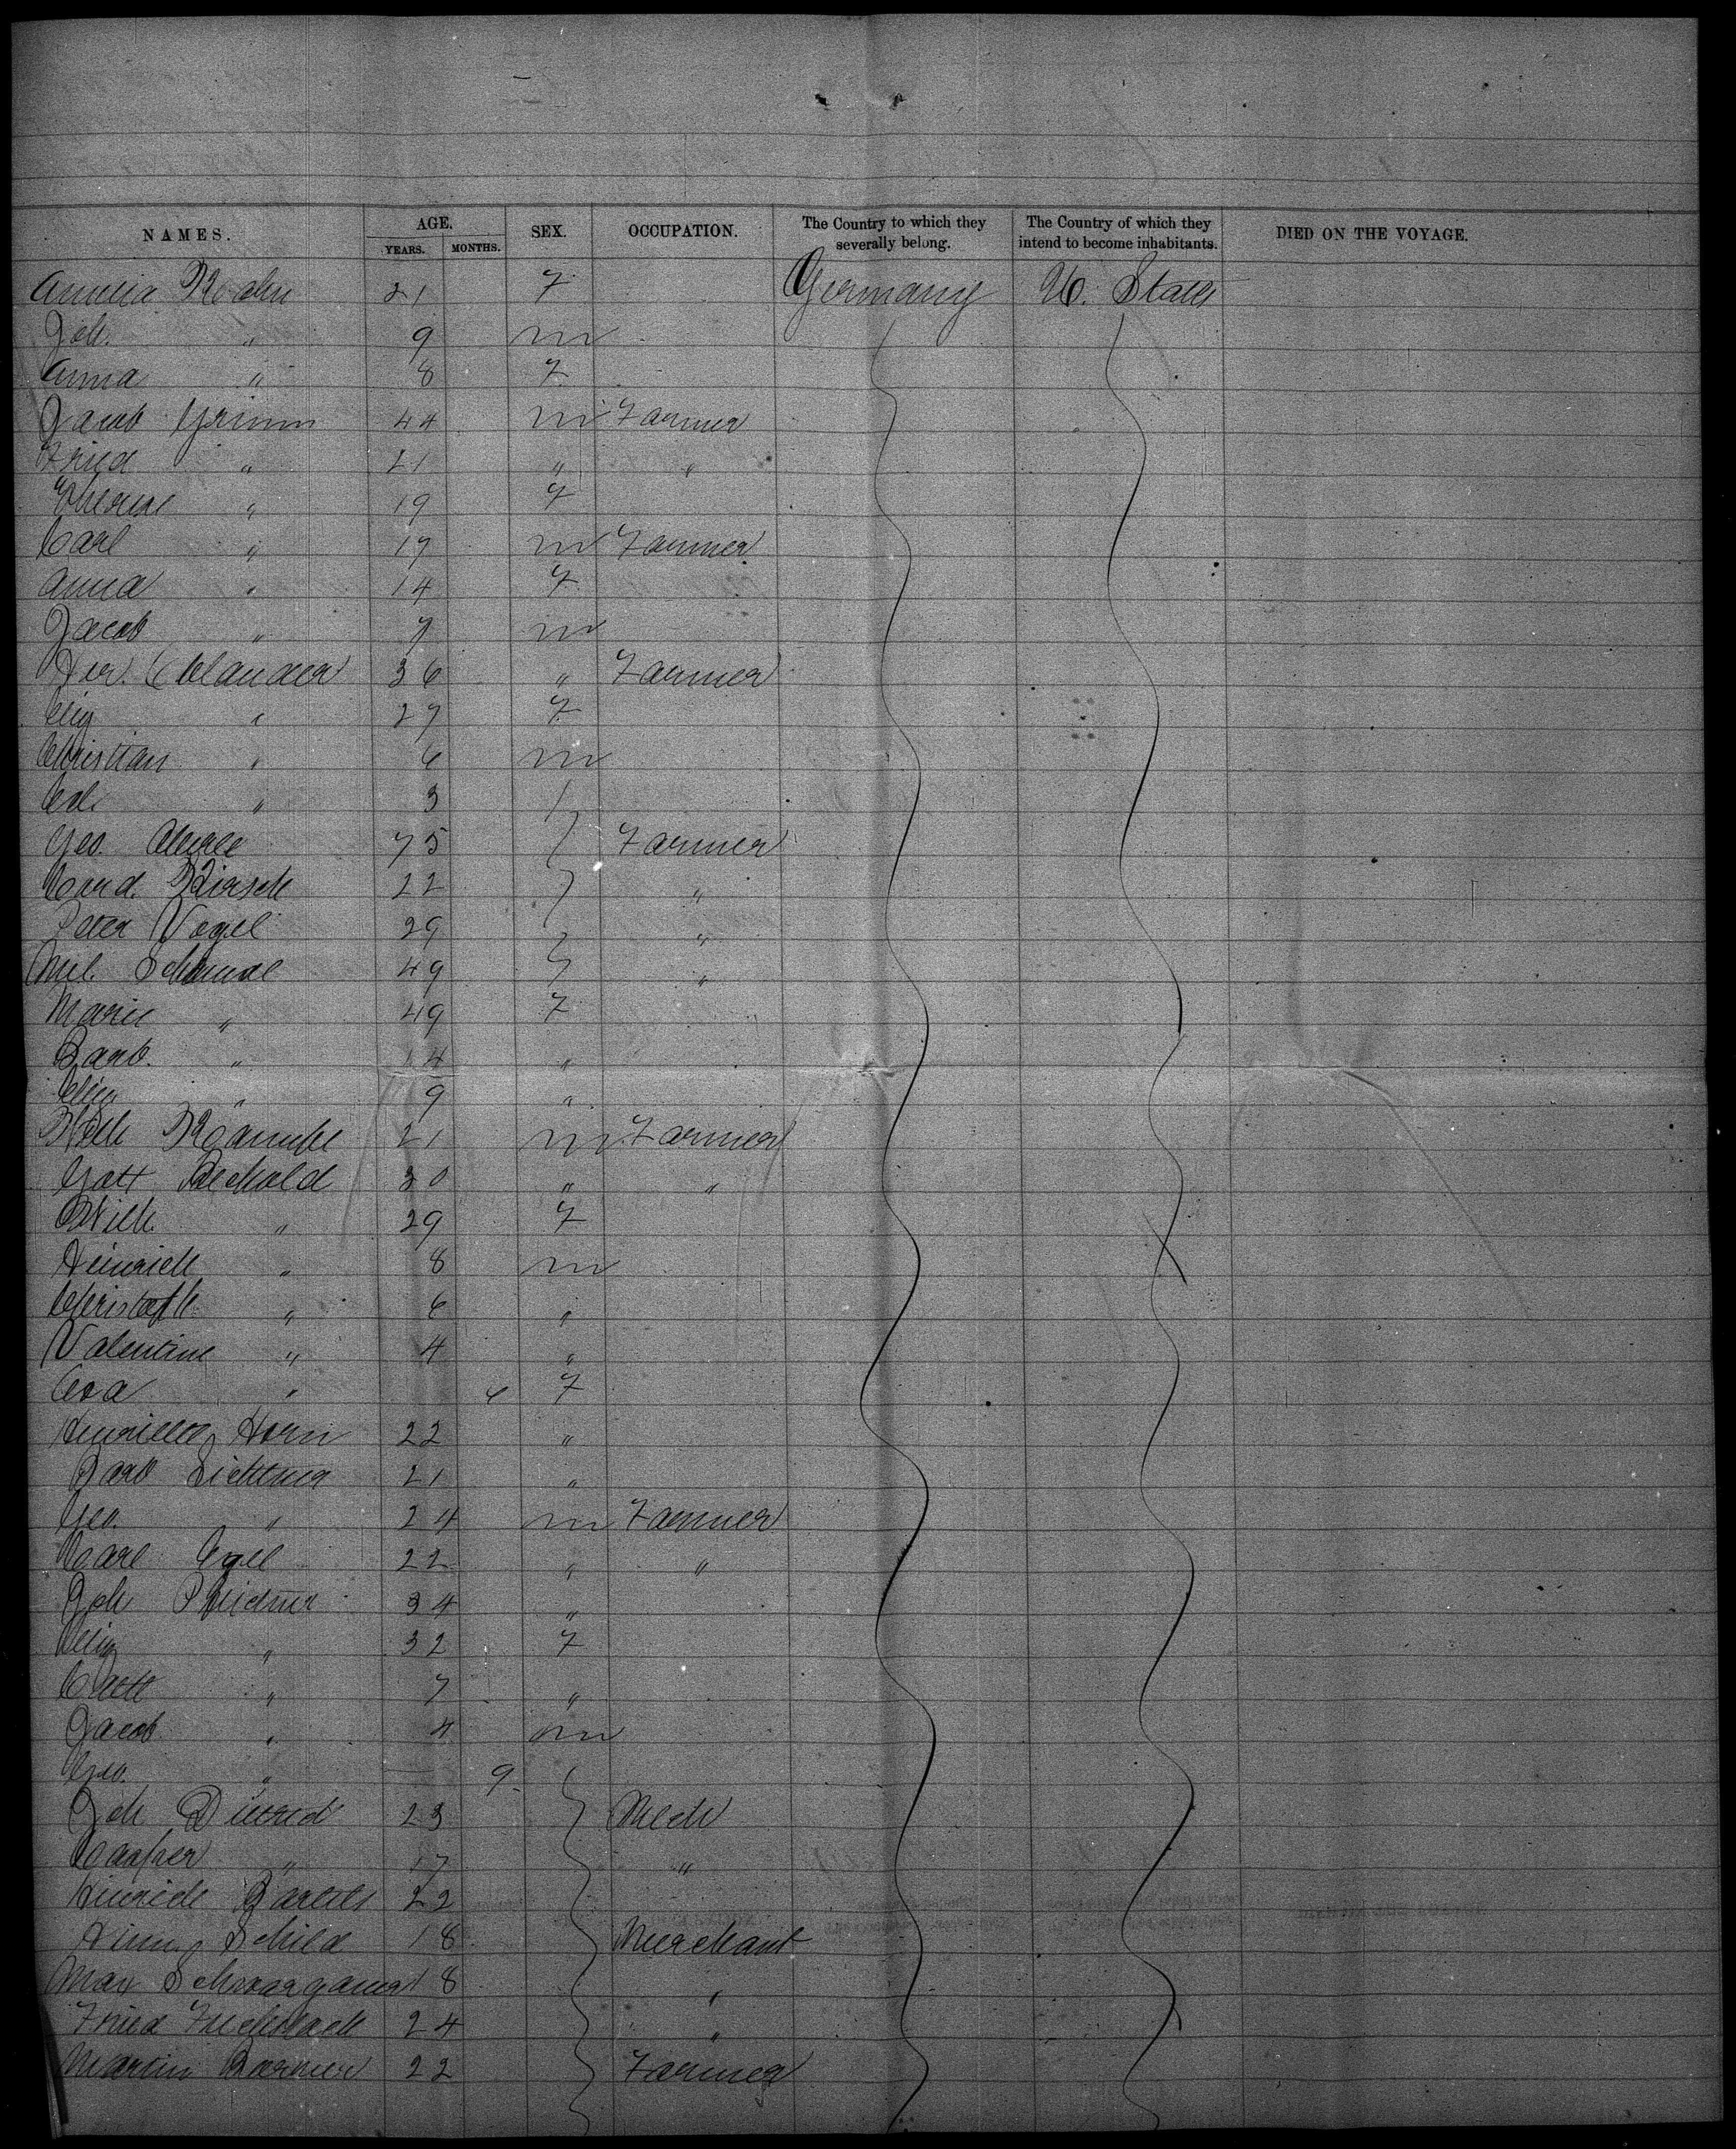 NAMES. AGE. SEX. OCCUPATION. The Country to which they severally belong. The Country of which they intend to become inhabitants. DIED ON THE VOYAGE.
YEARS. MONTHS.
21 F Germany U. States
Joh. " 9 m
Anna " 8 F
Jacob Grimm 44 m Farmer
Fried " 21 " "
Therese " 19 F
Carl " 17 m Farmer
Anna " 14 F
Jacob " 7 m
36 " Farmer
Elis " 27 F
Christian " 6 m
" 3
Geo. 75 Farmer
Conrad. Kirsch 22 "
Peter Vogel 29 "
49 "
Marie " 49 F
Barb. " 14 "
Elis " 9 "
21 m Farmer
Gott Bechold 30 " "
Wilh. " 29 F
Heinrich " 8 m
Christoph " 6 "
Valentine " 4 "
Eva " 6 F
Henriette Horn 22 "
Barb 21 "
Geo. " 24 m Farmer
Carl Egel 22 " "
Joh 34 "
Elis " 32 F
Cath " 7 "
Jacob " 4 m
Geo. " — 9
Joh Dietrich 23 Mech
Casper " 17 "
Heinrich Bartels 22
Schild 18 Merchant
Max 18 "
Fried 24 "
Martin 22 Farmer